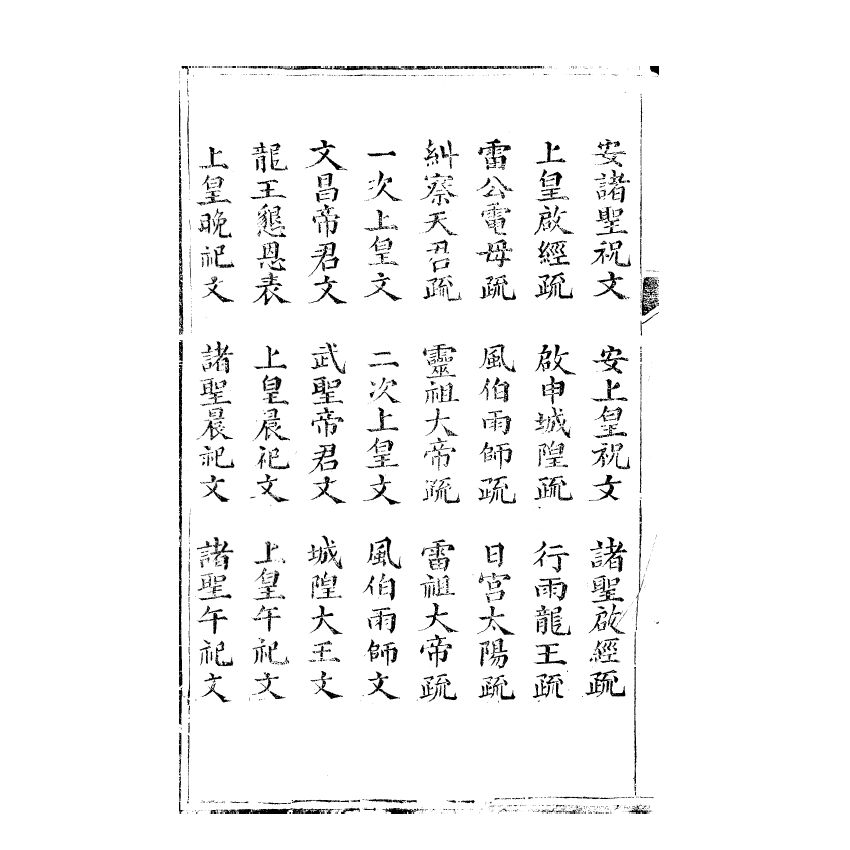 安諸聖祝文　安上皇祝文　諸聖啟經疏
上皇啟經疏　啟申城隍疏　行雨龍王疏
雷公電母疏　風伯雨師疏　日宮太陽疏
糾察天君疏　靈祖大帝疏　雷祖大帝疏
一次上皇文　二次上皇文　風伯雨師文
文昌帝君文　武聖帝君文　城隍大王文
龍王懇恩表　上皇晨祀文　上皇午祀文
上皇晚祀文　諸聖晨祀文　諸聖午祀文